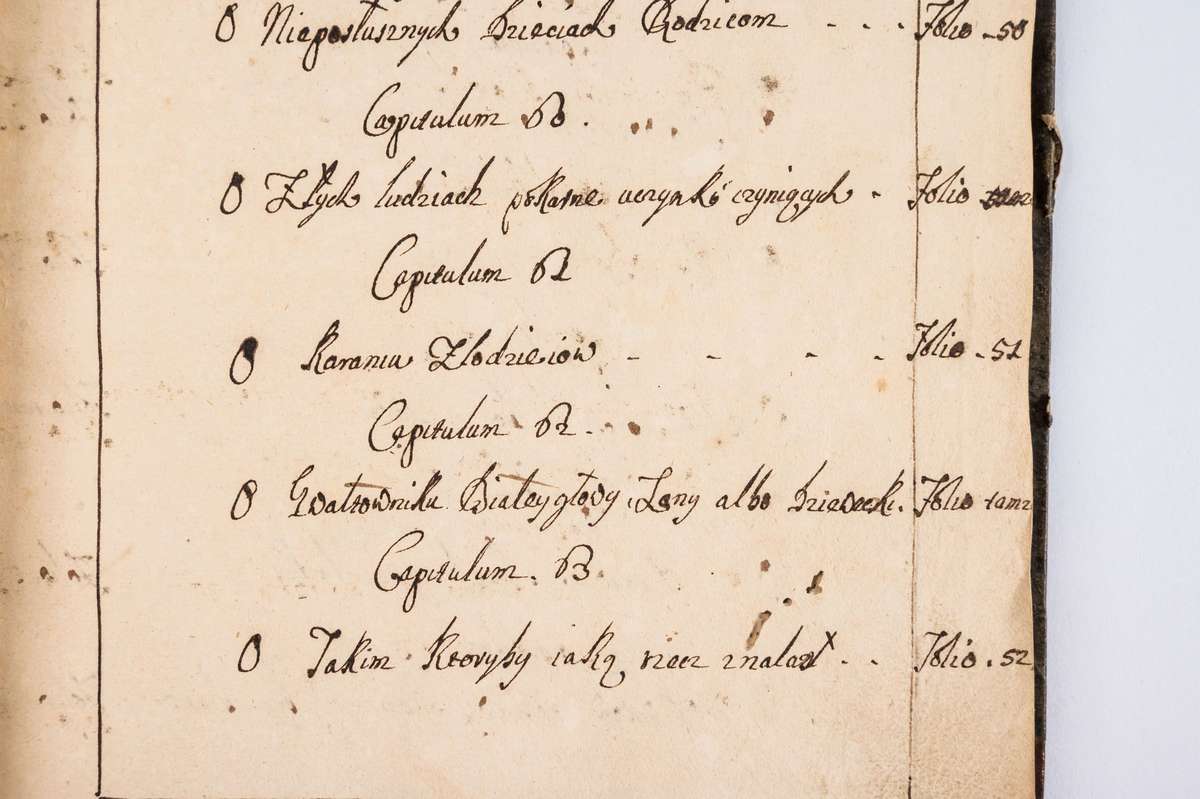 O Nieposłusznych Dzieciach Rodzicom - - - Folio - 50
Capitulum 60.
O Złych ludziach pokatne uczynki czyniących - Folio tamz
Capitulum 61
O Karaniu Zlodzieiow - - - - Folio - 51
Capitulum 62.
O Gwałtowniku Białeygłowy Zony albo Dziewecki. Folio tamz
Capitulum. 63
O Takim ktoryby iaką rzecz znalazł - - Folio. 52